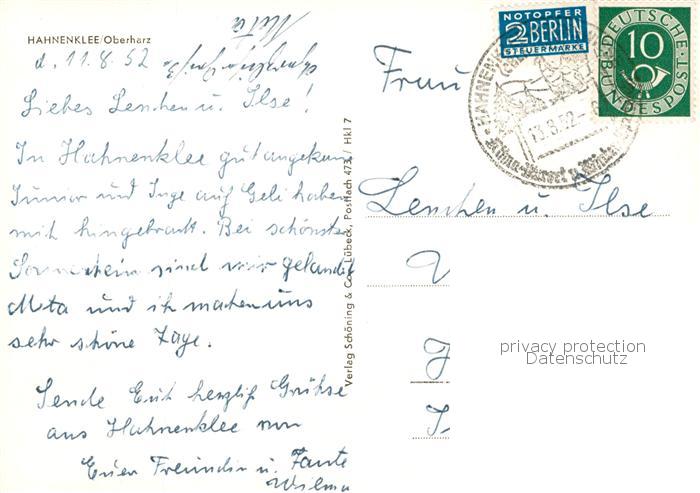 HAHNENKLEE/Oberharz
d. 11.8.52
Liebes Lenchen u. Ilse!
In Hahnenklee gut angekom
Junior und Inge auf Geli haben
mich hingebracht. Bei schönsten
Sonnenschein sind wir gelandet
Meta und ich machen uns
sehr schöne Tage.
Sende Euch herzlich Grüsse
aus Hahnenklee von
Eurer Freundin u. Tante
Wilma
Meta
Verlag Schöning & Co., Lübeck, Postfach 473 / Hkl 7
NOTOPFER
2 BERLIN
STEUERMARKE
DEUTSCHE BUNDESPOST
10
HAHNENKLEE
13.8.52
Frau
Lenchen u. Ilse
privacy protection
Datenschutz